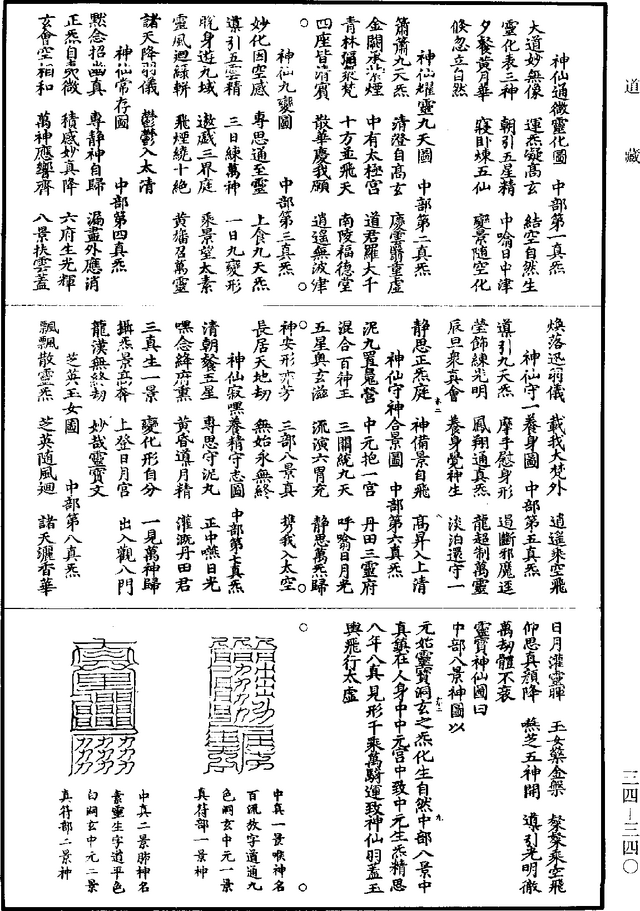 道藏
三四—三四〇
神仙通微靈化圖　中部第一真炁
大道妙無像　運炁凝高玄　結空自然生
靈化表三神　朝引五星精　中喻日中津
夕餐黃月華　寢卧煉五仙　變景隨空化
倏忽立自然
神仙耀靈九天圖　中部第二真炁
簫簫九天炁　清澄自高玄　慶雲翳重虛
金闕承紫煙　中有太極宮　道君羅大千
青林獵眾梵　十方並飛天　南陵福德堂
四座皆清賓　散華慶我願　逍遙無波津
神仙九變圖　中部第三真炁
妙化因空感　專思通至靈　上食九天炁
導引五雲精　三日練萬神　一日九變形
脫身遊九域　遨戲三界庭　乘景登太素
靈風迴綠軿　飛煙繞十絕　黃旛召萬靈
諸天降羽儀　鬱鬱入太清
神仙常存圖　中部第四真炁
默念招幽真　專靜神自歸　漏盡外應消
正炁自夷微　積感妙真降　六府生光輝
玄會空相和　萬神應響齊　八景扶雲蓋
煥落迅羽儀　載我大梵外　逍遙乘空飛
神仙守一養身圖　中部第五真炁
導引九天炁　摩手慰身形　遏斷邪魔逕
瑩飾練光明　鳳翔通真炁　龍超制萬靈
辰旦眾真會　養身覺神生　淡泊還守一
靜思正炁庭　神備景自飛　高昇入上清
神仙守神合景圖　中部第六真炁
泥九置魄營　中元抱一宮　丹田三靈府
混合百神王　三關統九天　呼喻日月光
五星奧玄滋　流演六胃充　靜思萬炁歸
神安形亦芳　三部八景真　携我入太空
長居天地劫　無始永無終
神仙寂嘿養精守志圖　中部第七真炁
清朝餐五星　專思守泥丸　正中嚥日光
嘿念絳府熏　黃昏導月精　灌溉丹田君
三真生一景　變化形自分　一見萬神歸
攝炁景高奔　上登日月宮　出入觀八門
龍漢無終劫　妙哉靈寶文
芝英玉女圖　中部第八真炁
飄飄散靈炁　芝英隨風迴　諸天灑香華
日月灌靈暉　玉女藥金槃　粲粲乘空飛
仰思真顏降　嚥芝五神開　導引光明徹
萬劫體不衰
靈寶神仙圖曰
中部八景神圖以
元始靈寶洞玄之炁化生自然中部八景中
真鎮在人身中中元宮中致中元生炁精思
八年八真見形千乘萬騎運致神仙羽蓋玉
輿飛行太虛
中真一景喉神名
百流放字道通九
色洞玄中元一景
真符部一景神
中真二景肺神名
素靈生字道平色
白洞玄中元二景
真符部二景神